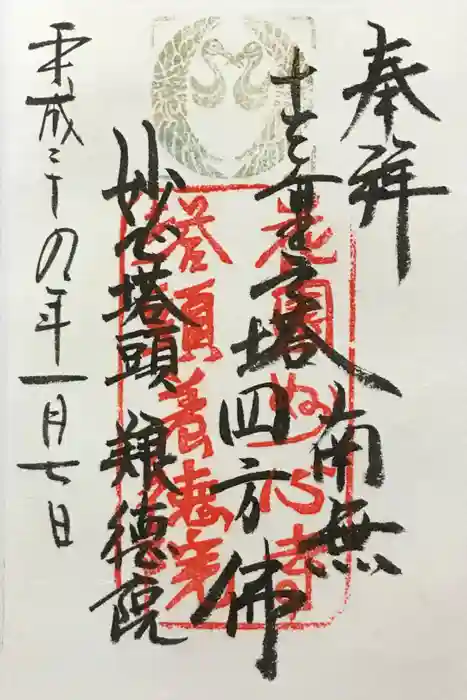 奉拝
南無
十三重塔四方佛
妙心塔頭 養徳院
平成二十九年一月七日
花園妙心寺
塔頭養徳院